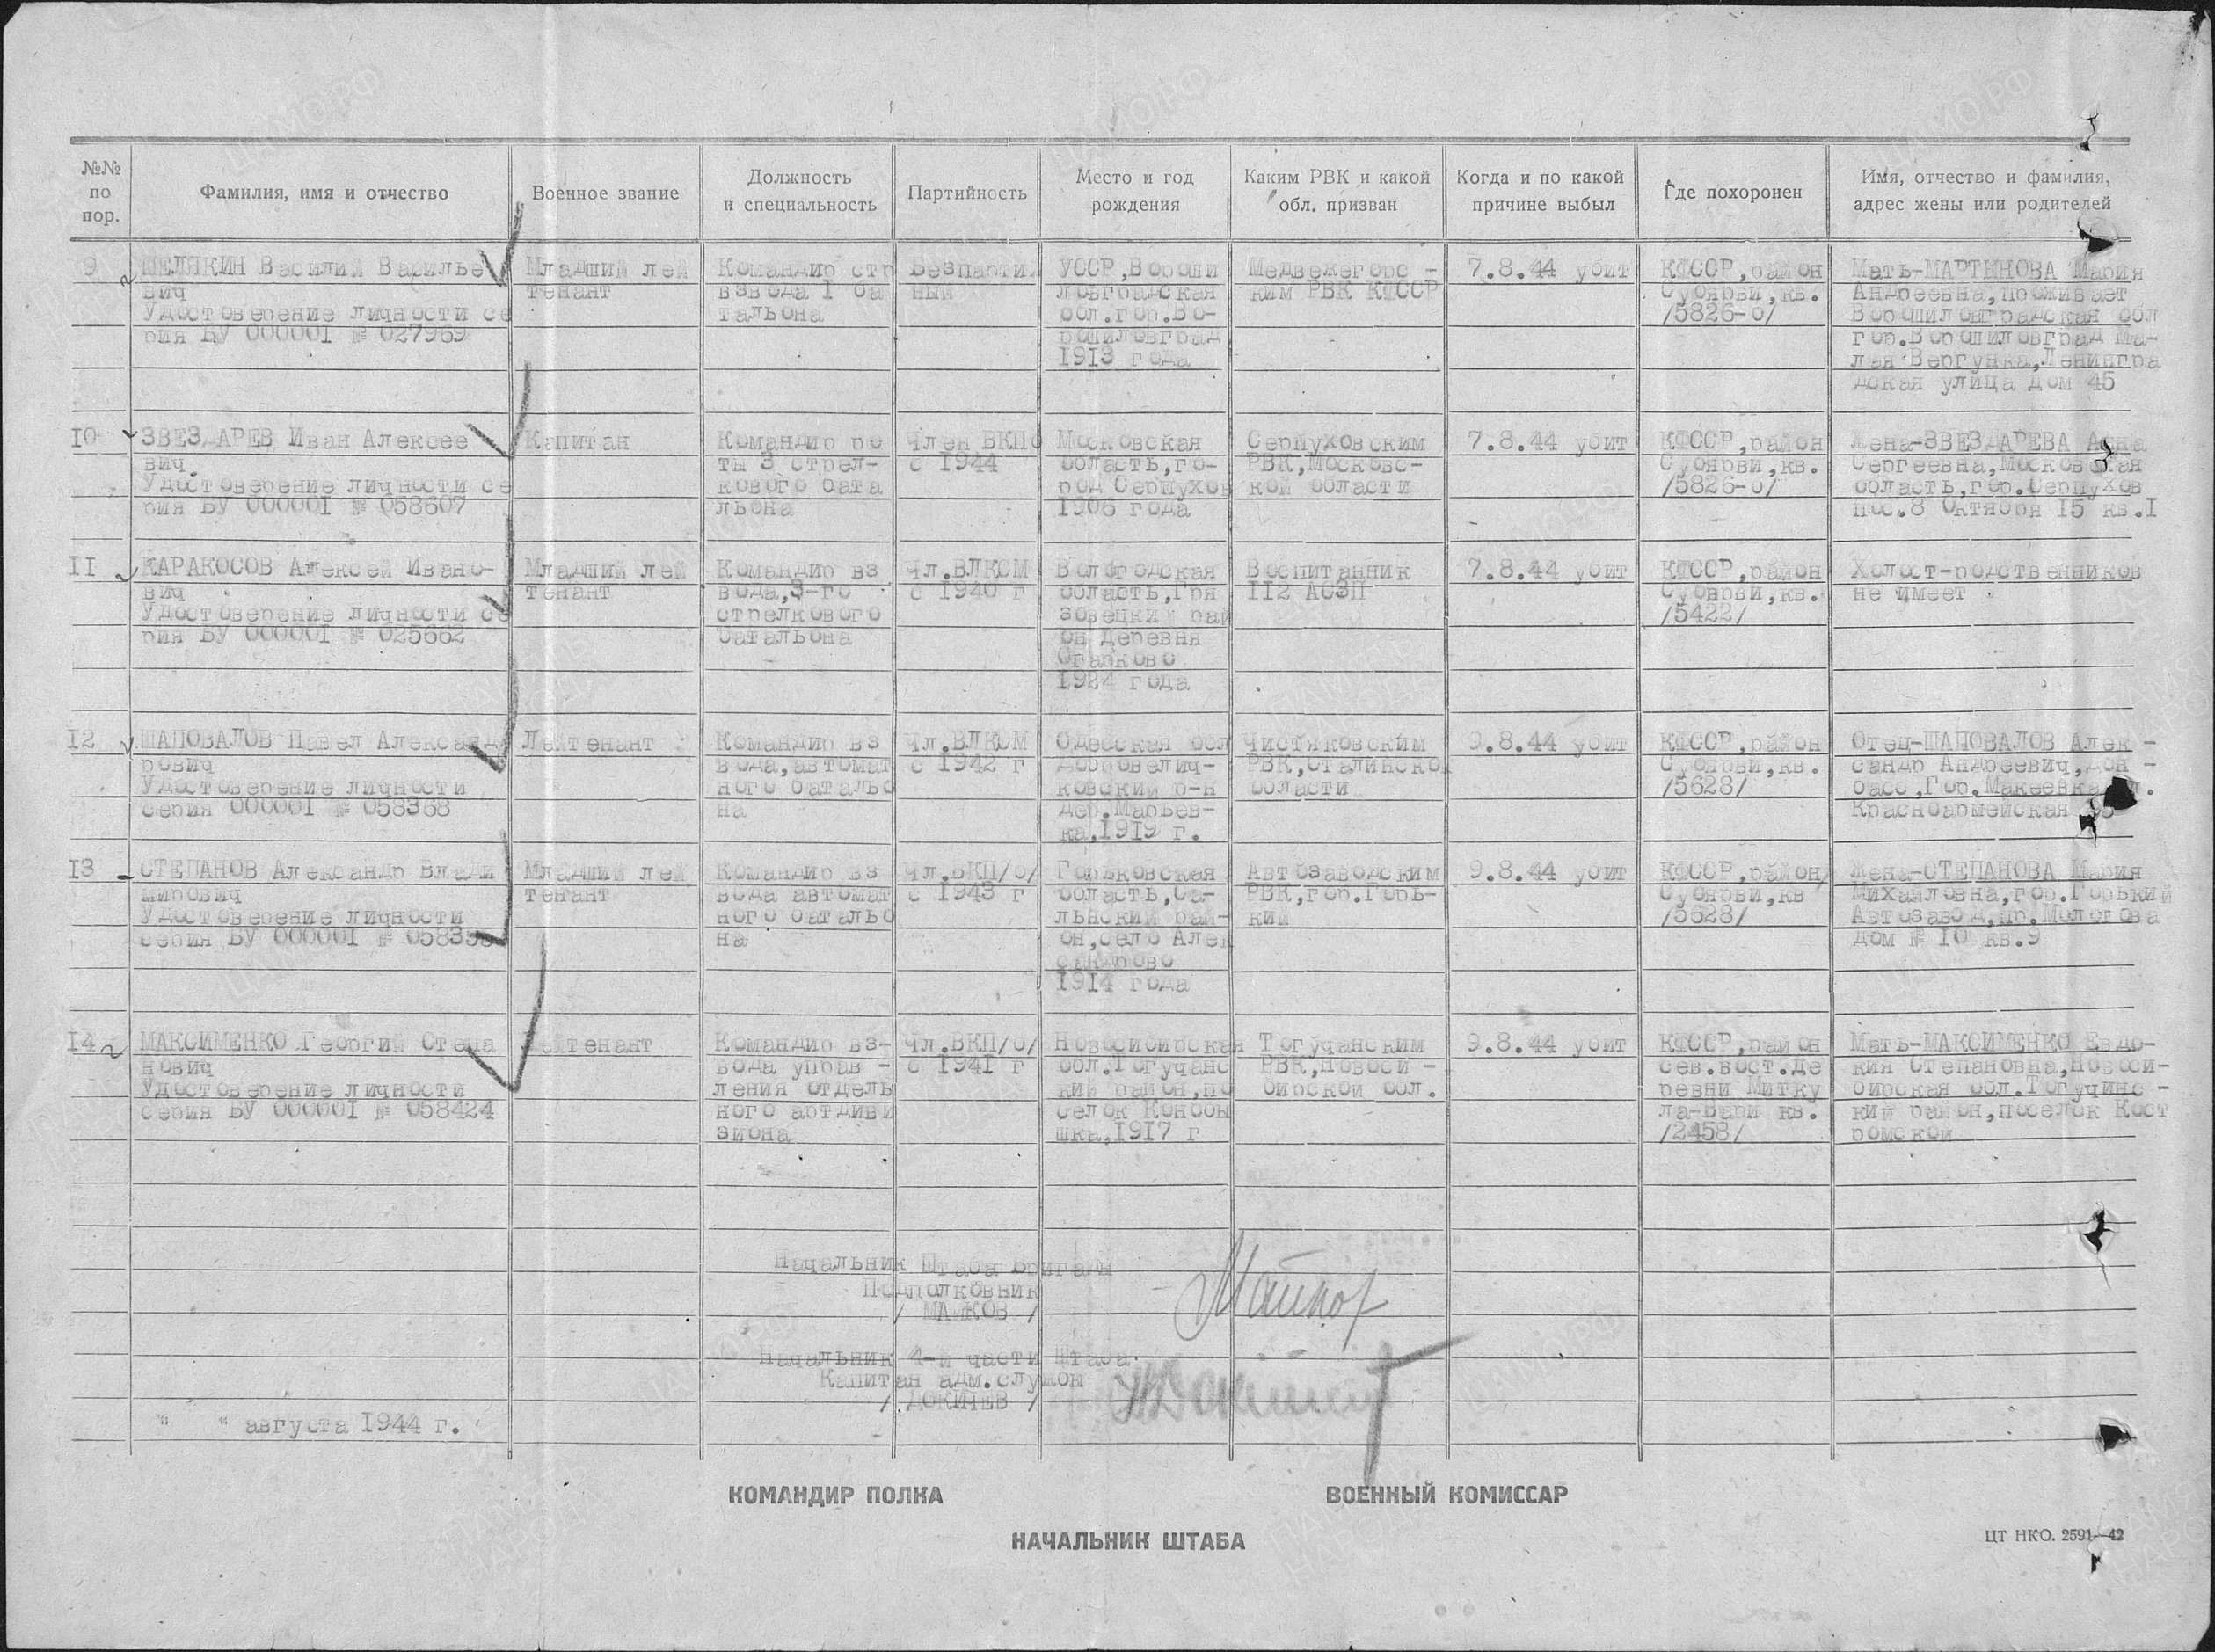 №№ по пор.
Фамилия, имя и отчество
Военное звание
Должность и специальность
Партийность
Место и год рождения
Каким РВК и какой обл. призван
Когда и по какой причине выбыл
Где похоронен
Имя, отчество и фамилия, адрес жены или родителей
9
ШЕЛЯКИН Василий Василье
вич
Удостоверение личности се
рия БУ 000001 № 027969
Младший лей
тенант
Командир стр
взвода I ба
тальона
Безпартий
ный
УССР, Вороши
ловградская
обл. гор. Во-
рошиловград
1913 года
Медвежегорс -
ким РВК КФССР
7.8.44 убит
КФССР, район
Суоярви, кв.
/5826-б/
Мать-МАРТЫНОВА Мария
Андреевна, проживает
Ворошиловградская обл
гор. Ворошиловград Ма-
лая Вергунка, Ленингра
дская улица дом 45
10
ЗВЕЗДАРЕВ Иван Алексее
вич.
Удостоверение личности се
рия БУ 000001 № 058607
Капитан
Командир ро
ты 3 стрел-
кового бата
льона
Член ВКПб
с 1944
Московская
область, го-
род Серпухов
1906 года
Серпуховским
РВК, Московс-
кой области
7.8.44 убит
КФССР, район
Суоярви, кв.
/5826-б/
Жена-ЗВЕЗДАРЕВА Анна
Сергеевна, Московская
область, гор. Серпухов
пос. 8 Октября 15 кв. I
11
КАРАКОСОВ Алексей Ивано-
вич
Удостоверение личности се
рия БУ 000001 № 025662
Младший лей
тенант
Командир вз
вода, 3-го
стрелкового
батальона
Чл. ВЛКСМ
с 1940 г
Вологодская
область, Гря
зовецкий рай
он деревня
Огарково
1924 года
Воспитанник
112 АСЗП
7.8.44 убит
КФССР, район
Суоярви, кв.
/5422/
Холост-родственников
не имеет
12
ШАПОВАЛОВ Павел Александ
рович
Удостоверение личности
серия 000001 № 058368
Лейтенант
Командир вз
вода, автомат
ного батальо
на
Чл. ВЛКСМ
с 1942 г
Одесская обл
Добровелич-
ковский р-н
дер. Марьев-
ка, 1919 г.
Чистяковским
РВК, Сталинской
области
9.8.44 убит
КФССР, район
Суоярви, кв.
/5628/
Отец-ШАПОВАЛОВ Алек -
сандр Андреевич, Дон -
басс, Гор. Макеевка
Красноармейская
13
СТЕПАНОВ Александр Влади
мирович
Удостоверение личности
серия БУ 000001 №
Младший лей
тенант
Командир вз
вода автомат
ного батальо
на
Чл. ВКП/б/
с 1943 г
Горьковская
область, Са-
льский рай-
он, село Алек
сандрово
1914 года
Автозаводским
РВК, гор. Горь-
кий
9.8.44 убит
КФССР, район
Суоярви, кв
/5628/
Жена-СТЕПАНОВА Мария
Михайловна, гор. Горький
Автозавод, пр. Молотова
дом № 10 кв. 9
14
МАКСИМЕНКО Георгий Степа
нович
Удостоверение личности
серия БУ 000001 № 058424
Лейтенант
Командир вз-
вода управ -
ления отдель
ного артдиви
зиона
Чл. ВКП/б/
с 1941 г
Новосибирская
обл. Тогучанс
кий район, по
селок
1917 г
Тогучанским
РВК, Новоси -
бирской обл.
9.8.44 убит
КФССР, район
сев. вост. де
ревни Митку
ла-Вари кв.
/2458/
Мать-МАКСИМЕНКО Евдо-
кия Степановна, Новоси-
бирская обл. Тогучинс -
кий район, поселок Кост
ромской
Начальник Штаба Бригады
Подполковник
/ МАЙКОВ /
Начальник 4-й части Штаба
Капитан адм. службы
/ ДОКИЧЕВ /
" " августа 1944 г.
КОМАНДИР ПОЛКА
ВОЕННЫЙ КОМИССАР
НАЧАЛЬНИК ШТАБА
ЦТ НКО. 2591—42